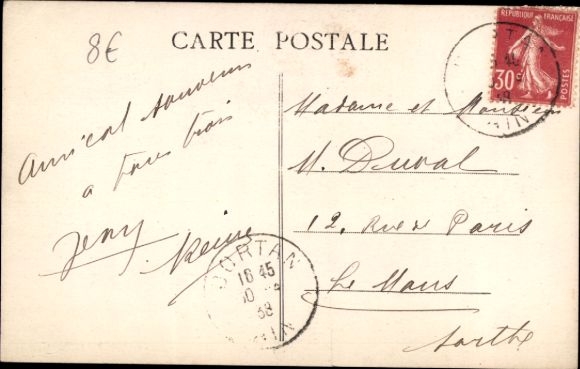 8€
CARTE POSTALE
REPUBLIQUE FRANÇAISE
30c
POSTES
Amical souvenir
a tous trois
Jeny
Reine
DORTAN
16 45
10
38
AIN
Madame et Monsieur
M. Duval
12, Rue de Paris
Le Mans
Sarthe